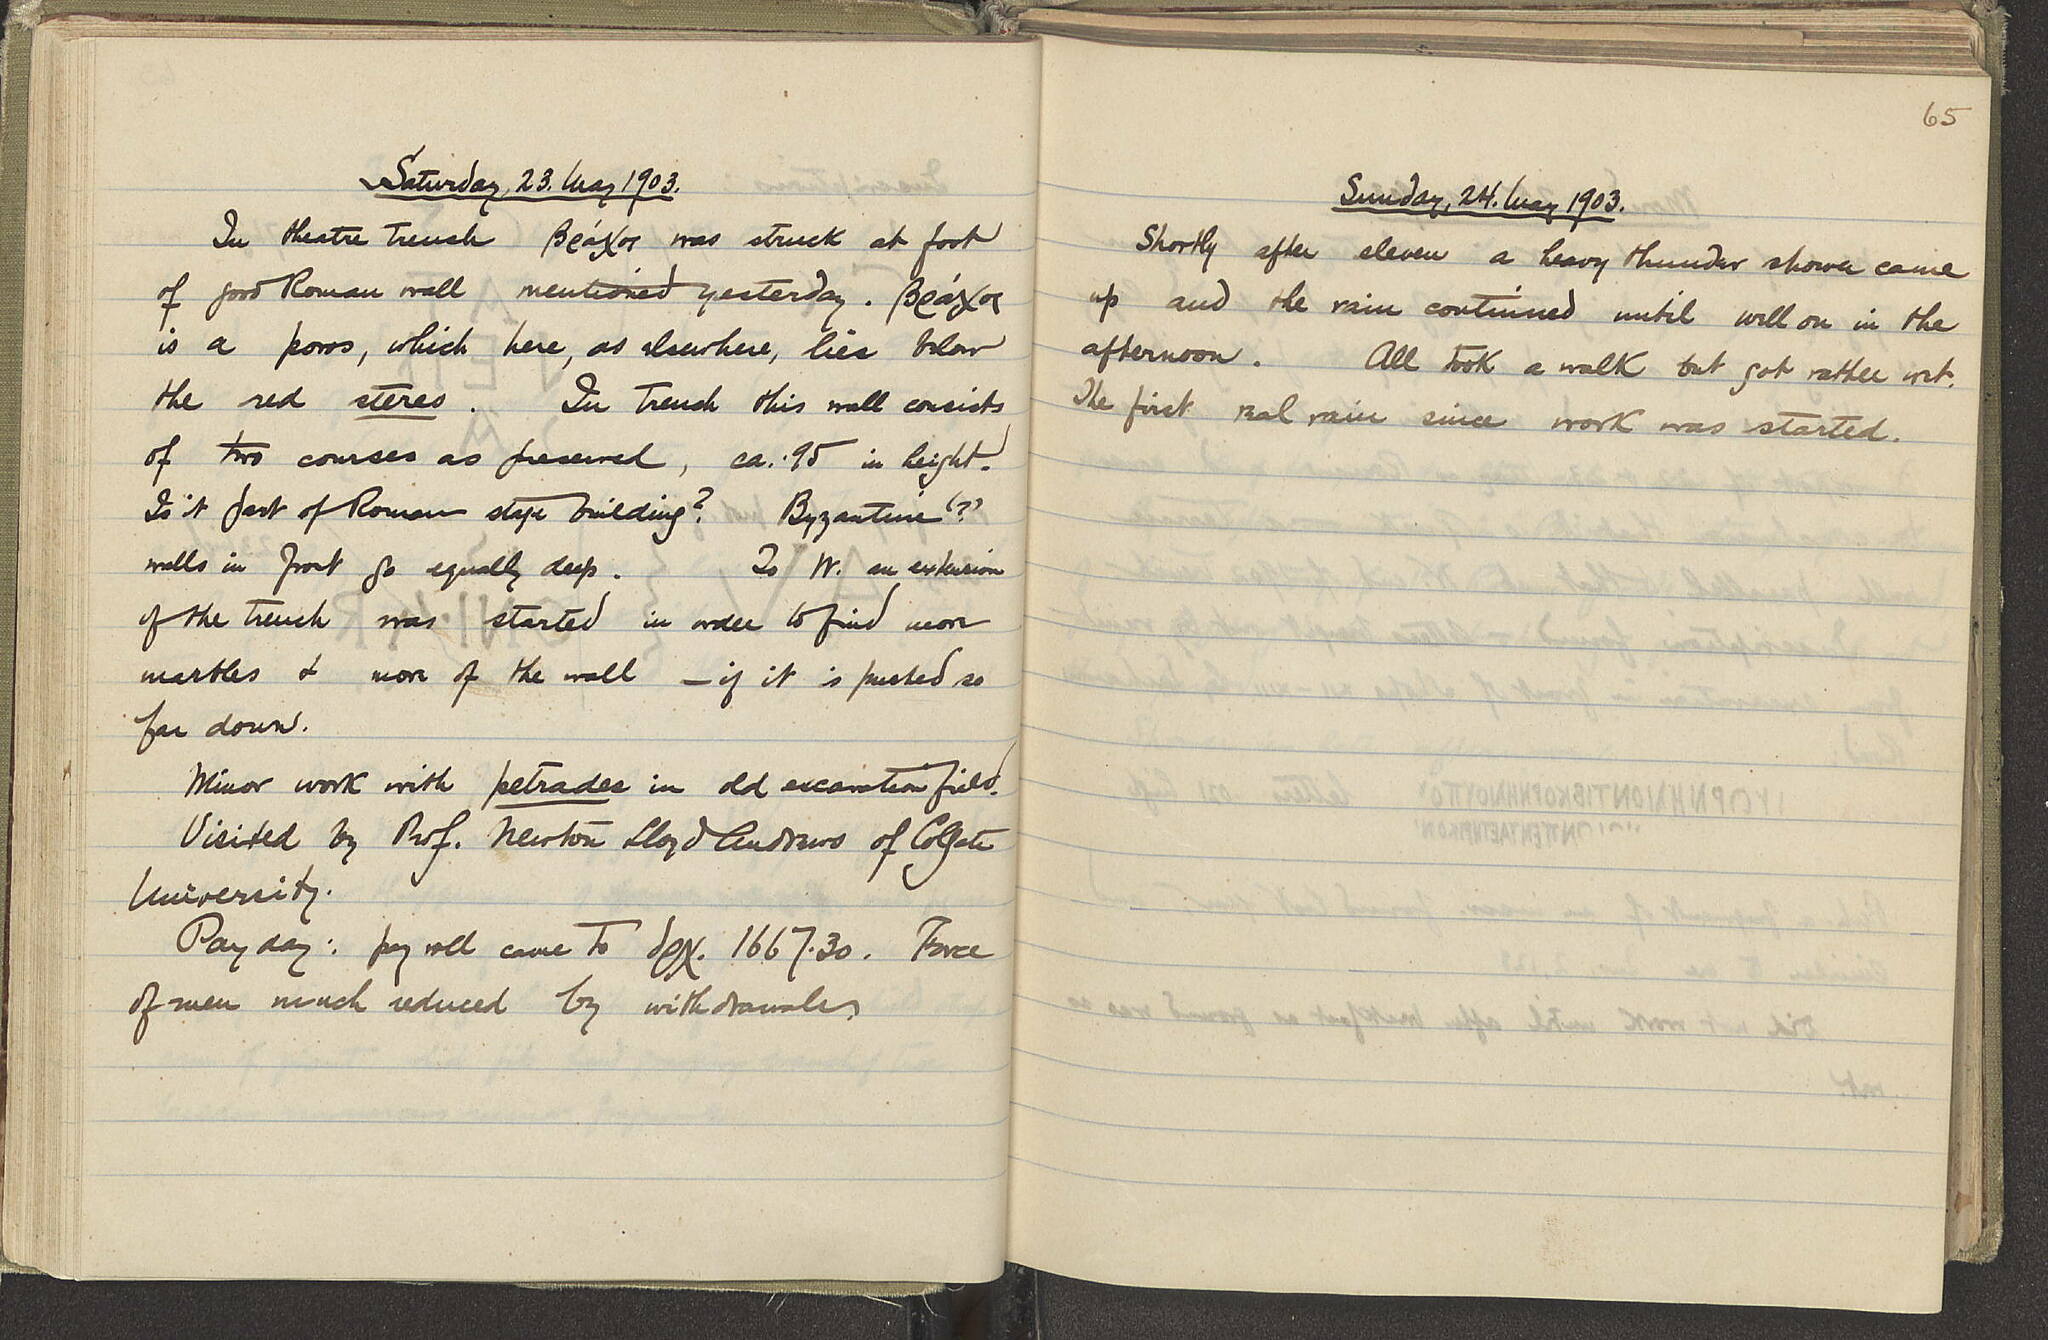 Saturday, 23. May 1903.
In theatre trench βράχος was struck at foot
of good Roman wall mentioned yesterday. βράχος
is a poros, which here, as elsewhere, lies below
the red stereo. In trench this wall consists
of two courses as preserved, ca. .95 in height.
Is it part of Roman stage building? Byzantine (?)
walls in front go equally deep. To W. an extension
of the trench was started in order to find more
marbles & more of the wall – if it is pushed so
far down.
Minor work with petrades in old excavation field.
Visited by Prof. Newton Lloyd Andrews of Colgate
University.
Pay day: pay roll came to δρχ. 1667.30. Force
of men much reduced by withdrawals
65
Sunday, 24. May 1903.
Shortly after eleven a heavy thunder shower came
up and the rain continued until well on in the
afternoon. All took a walk but got rather wet.
The first real rain since work was started.